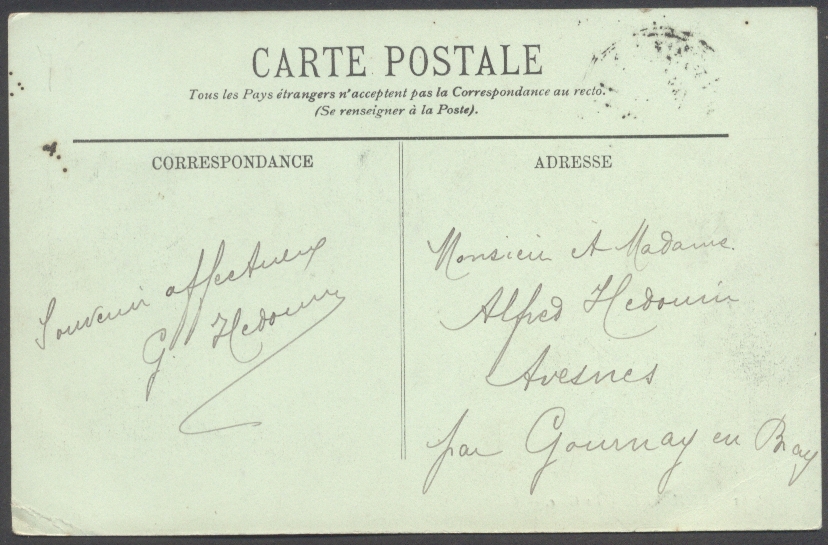 CARTE POSTALE
Tous les Pays étrangers n'acceptent pas la Correspondance au recto.
(Se renseigner à la Poste).
CORRESPONDANCE
Souvenir affectueux
G. Hedouin
ADRESSE
Monsieur et Madame
Alfred Hedouin
Avesnes
par Gournay en Bray